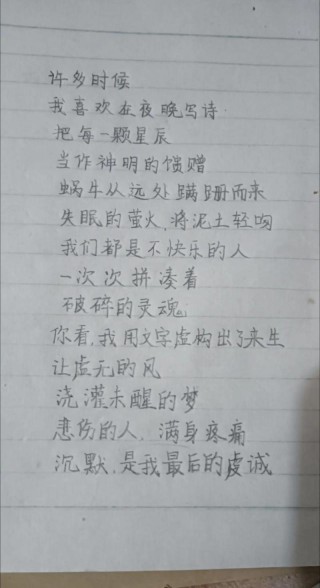 许多时候
我喜欢在夜晚写诗
把每一颗星辰
当作神明的馈赠
蜗牛从远处蹒跚而来
失眠的萤火,将泥土轻吻
我们都是不快乐的人
一次次拼凑着
破碎的灵魂。
你看,我用文字虚构出了来生
让虚无的风
浇灌未醒的梦
悲伤的人,满身疼痛
沉默,是我最后的虔诚